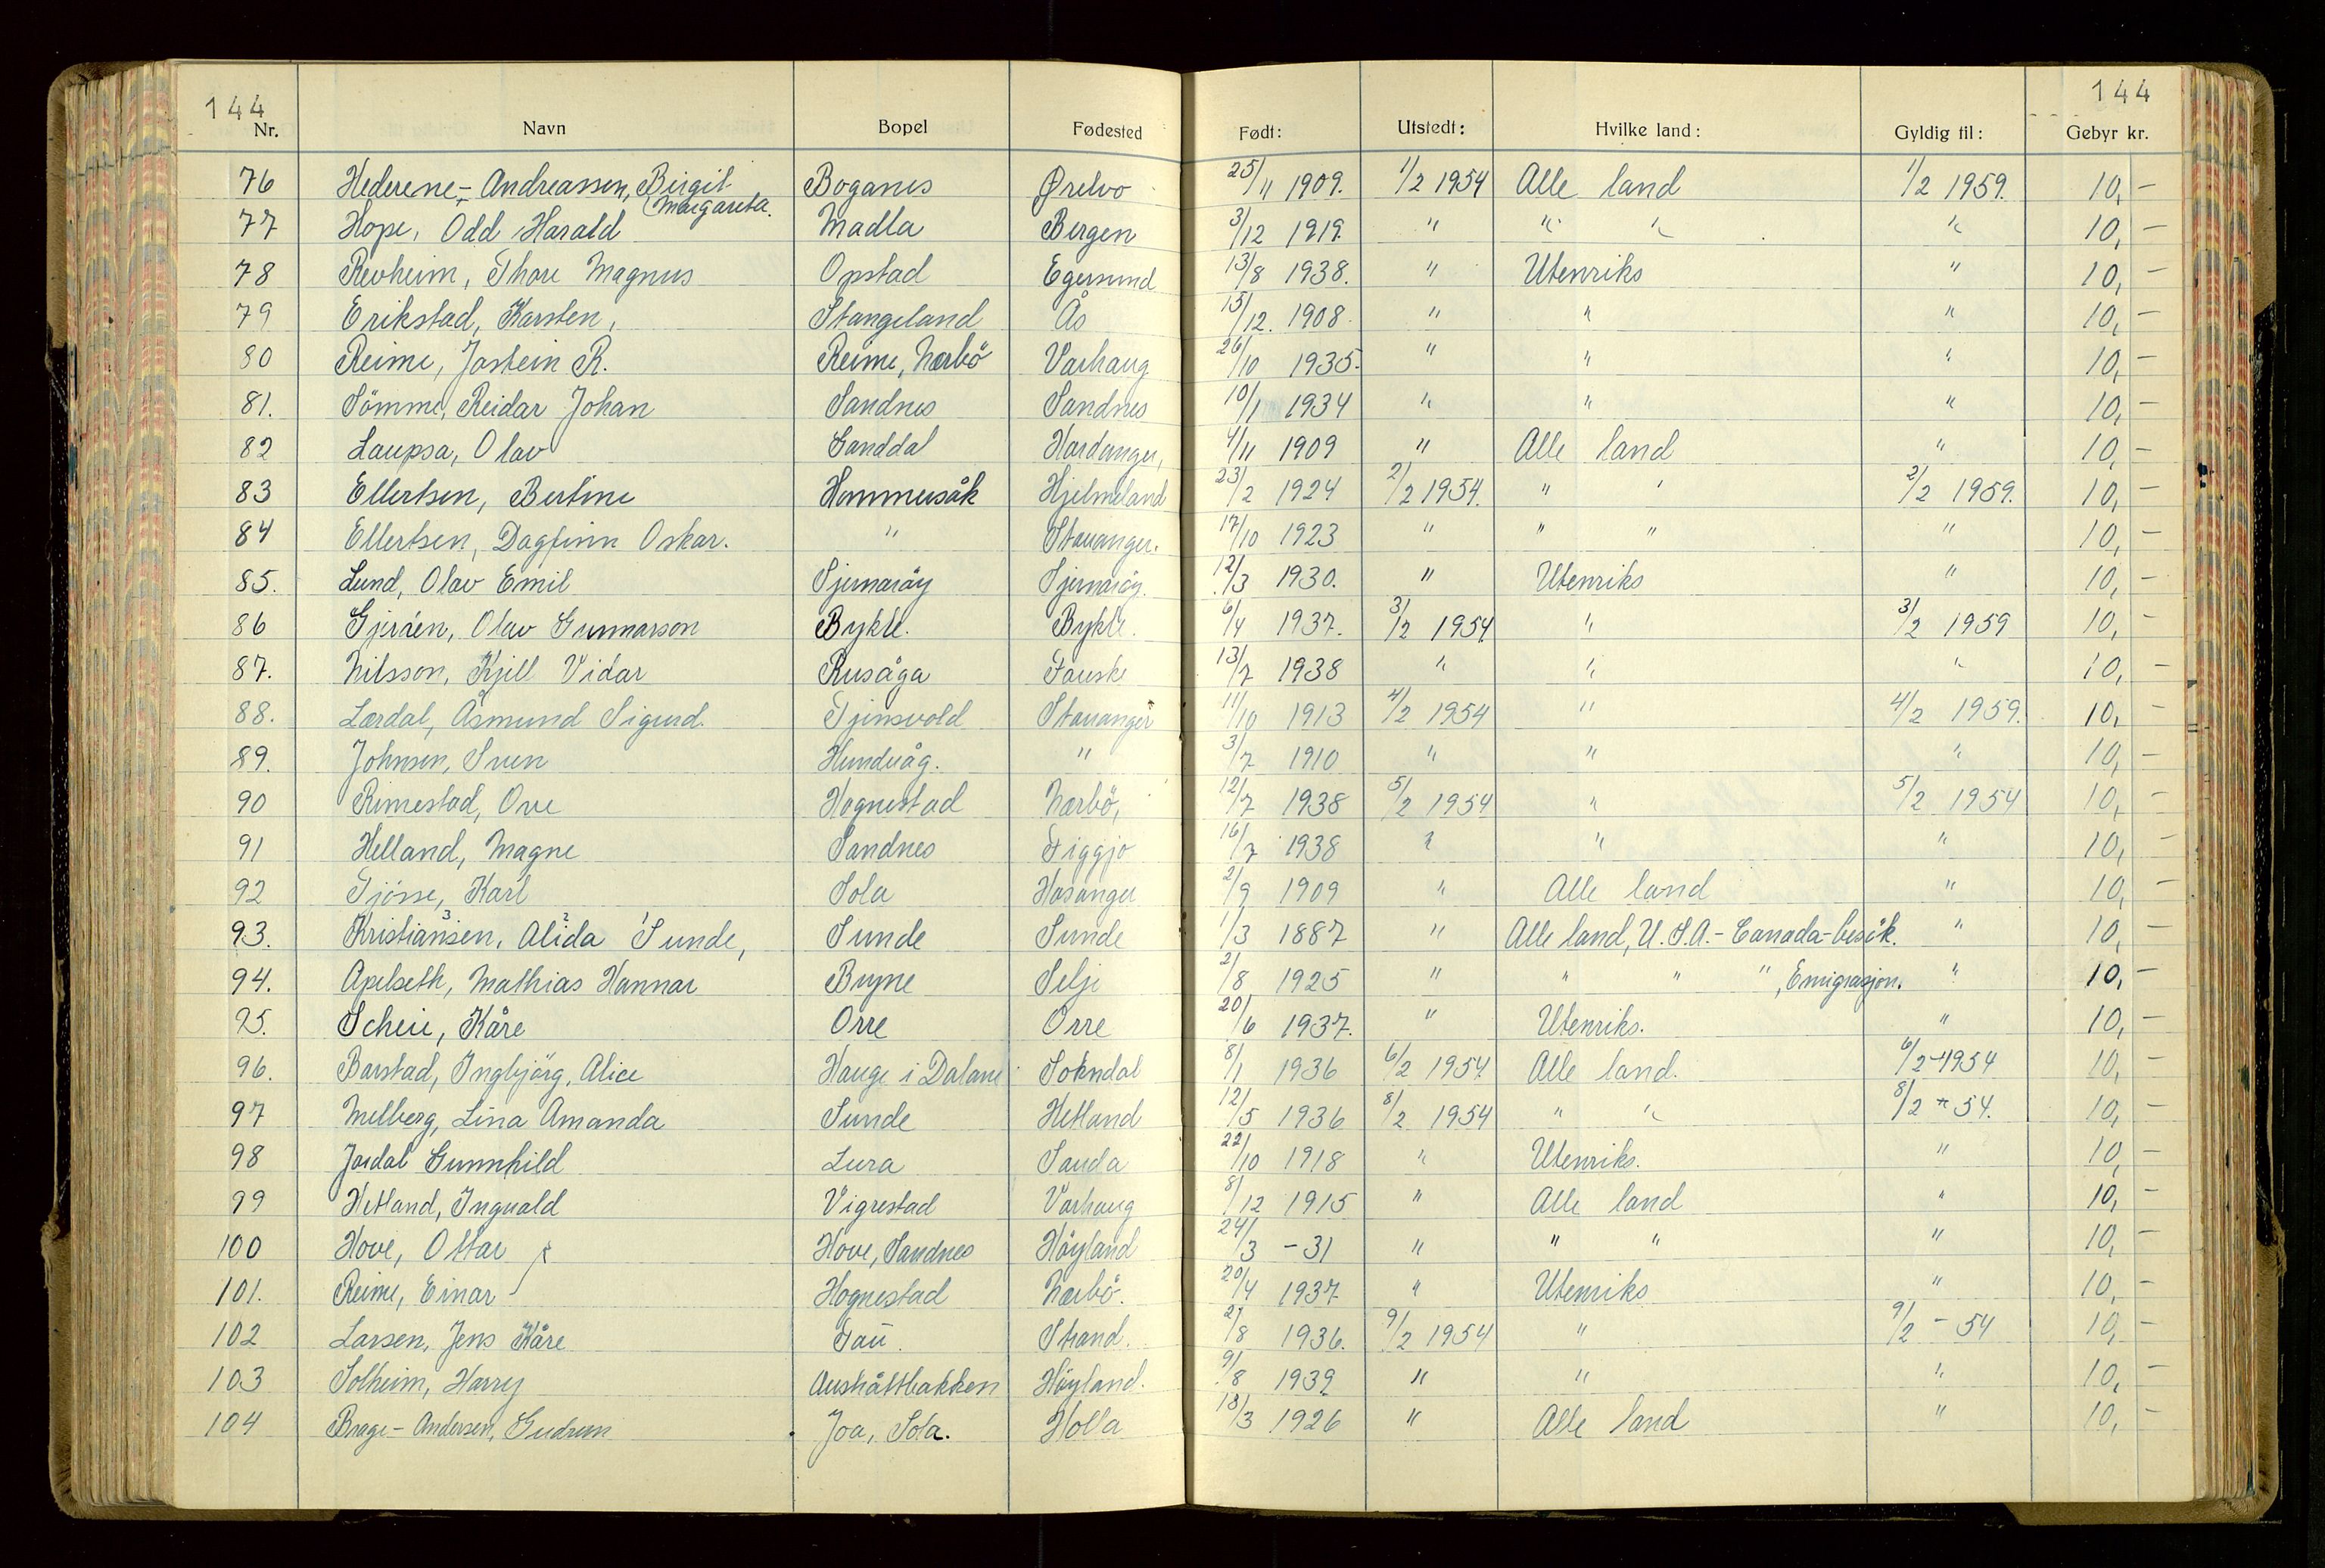 144 144
Nr. Navn Bopel Fødested Født: Utstedt: Hvilke land: Gyldig til: Gebyr kr.
76 Hederene-Andreassen, Birgit Boganes Ørebro 25/11 1909. 1/2 1954 Alle land 1/2 1959. 10,-
Margareta.
77 Hope, Odd Harald Madla Bergen 3/12 1919. " " " " 10,-
78 Revheim, Thore Magnus Opstad Egersund 13/8 1938. " Utenriks " 10,-
79 Erikstad, Karsten, Stangeland Ås 15/12. 1908. " " " 10,-
80 Reime, Jostein R. Reime, Nærbö Varhaug 26/10 1935. " " " 10,-
81. Sömme, Reidar Johan Sandnes Sandnes 10/1 1934 " " " 10,-
82 Laupsa, Olav Ganddal Hardanger, 4/11 1909 " Alle land " 10,-
83 Ellertsen, Bertine Hommersåk Hjelmeland 23/2 1924 2/2 1954. " " 2/2 1959. 10,-
84 Ellertsen, Dagfinn Oskar. " Stavanger. 17/10 1923 " " " " 10,-
85. Lund, Olav Emil Sjernaröy Sjernaröy. 12/3 1930. " Utenriks " 10,-
86 Gjerden, Olav Gunnarson Bykle. Bykle. 6/4 1937. 3/2 1954 " 3/2 1959 10,-
87. Nilsson, Kjell Vidar Rusåga Fauske 13/7 1938 " " " 10,-
88. Lærdal, Åsmund Sigurd. Tjensvold Stavanger 11/10 1913 4/2 1954 " 4/2 1959. 10,-
89. Johnsen, Sven Hundvåg. " 3/7 1910 " " " 10,-
90 Rimestad, Ove Hognestad Nærbö, 12/7 1938 5/2 1954 " 5/2 1954 10,-
91 Helland, Magne Sandnes Figgjo 16/7 1938 " " " 10,-
92 Tjösse, Karl Sola Hosanger 2/9 1909 " Alle land " 10,-
93. Kristiansen, 3 Alida 2 Sunde, 1 Sunde Sunde 1/3 1887 " Alle land, U.S.A.-Canada-besök. " 10,-
94. Apelseth, Mathias Hannar Bryne Selje 2/8 1925 " " " ", Emigrasjon. " 10,-
95. Scheie, Kåre Orre Orre 20/6 1937. " Utenriks. " 10,-
96. Barstad, Ingbjörg, Alice Hauge i Dalane Sokndal 8/1 1936 6/2 1954 Alle land. 6/2-1954 10,-
97 Melberg, Lina Amanda Sunde Hetland 12/5 1936 8/2 1954 " " 8/2 - 54. 10,-
98 Jordal Gunnhild Lura Sauda 22/10 1918 " Utenriks. " 10,-
99 Hetland, Ingvald Vigrestad Varhaug 8/12 1915 " Alle land " 10,-
100 Hove, Ottar Hove, Sandnes Höyland 24/3 -31 " " " " 10,-
101. Reime, Einar Hognestad Nærbö. 20/4 1937 " Utenriks " 10,-
102 Larsen, Jens Kåre Tau Strand. 2/8 1936. 9/2 1954 " 9/2 - 54 10,-
103 Solheim, Harry Austråttbakken Höyland. 9/8 1939 " " " 10,-
104 Brage-Andersen, Gudrun Joa, Sola. Holla 18/3 1926 " Alle land " 10,-